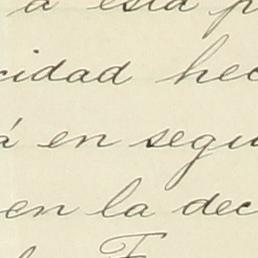 a esta p
cidad hec
á en segu
en la dec